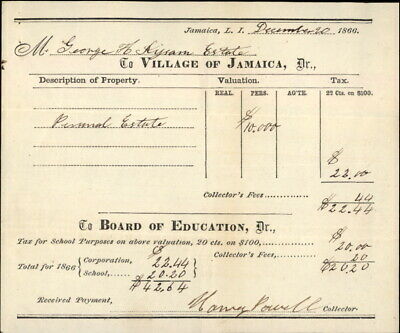 Jamaica, L. I. December 20 1866.
M George H. Hiram Estate
To VILLAGE OF JAMAICA, Dr.,
Description of Property. Valuation. Tax.
REAL. PERS. AG'TE. 22 Cts. on $100.
Personal Estate $10.000
$
22.00
Collector's Fees, 44
$22.44
To BOARD OF EDUCATION, Dr.,
Tax for School Purposes on above valuation, 20 cts. on $100, $20.00
Collector's Fees, 20
$20.20
Total for 1866 { Corporation, $22.44
School, 20.20
$42.64
Received Payment,
Harvey Powell Collector.